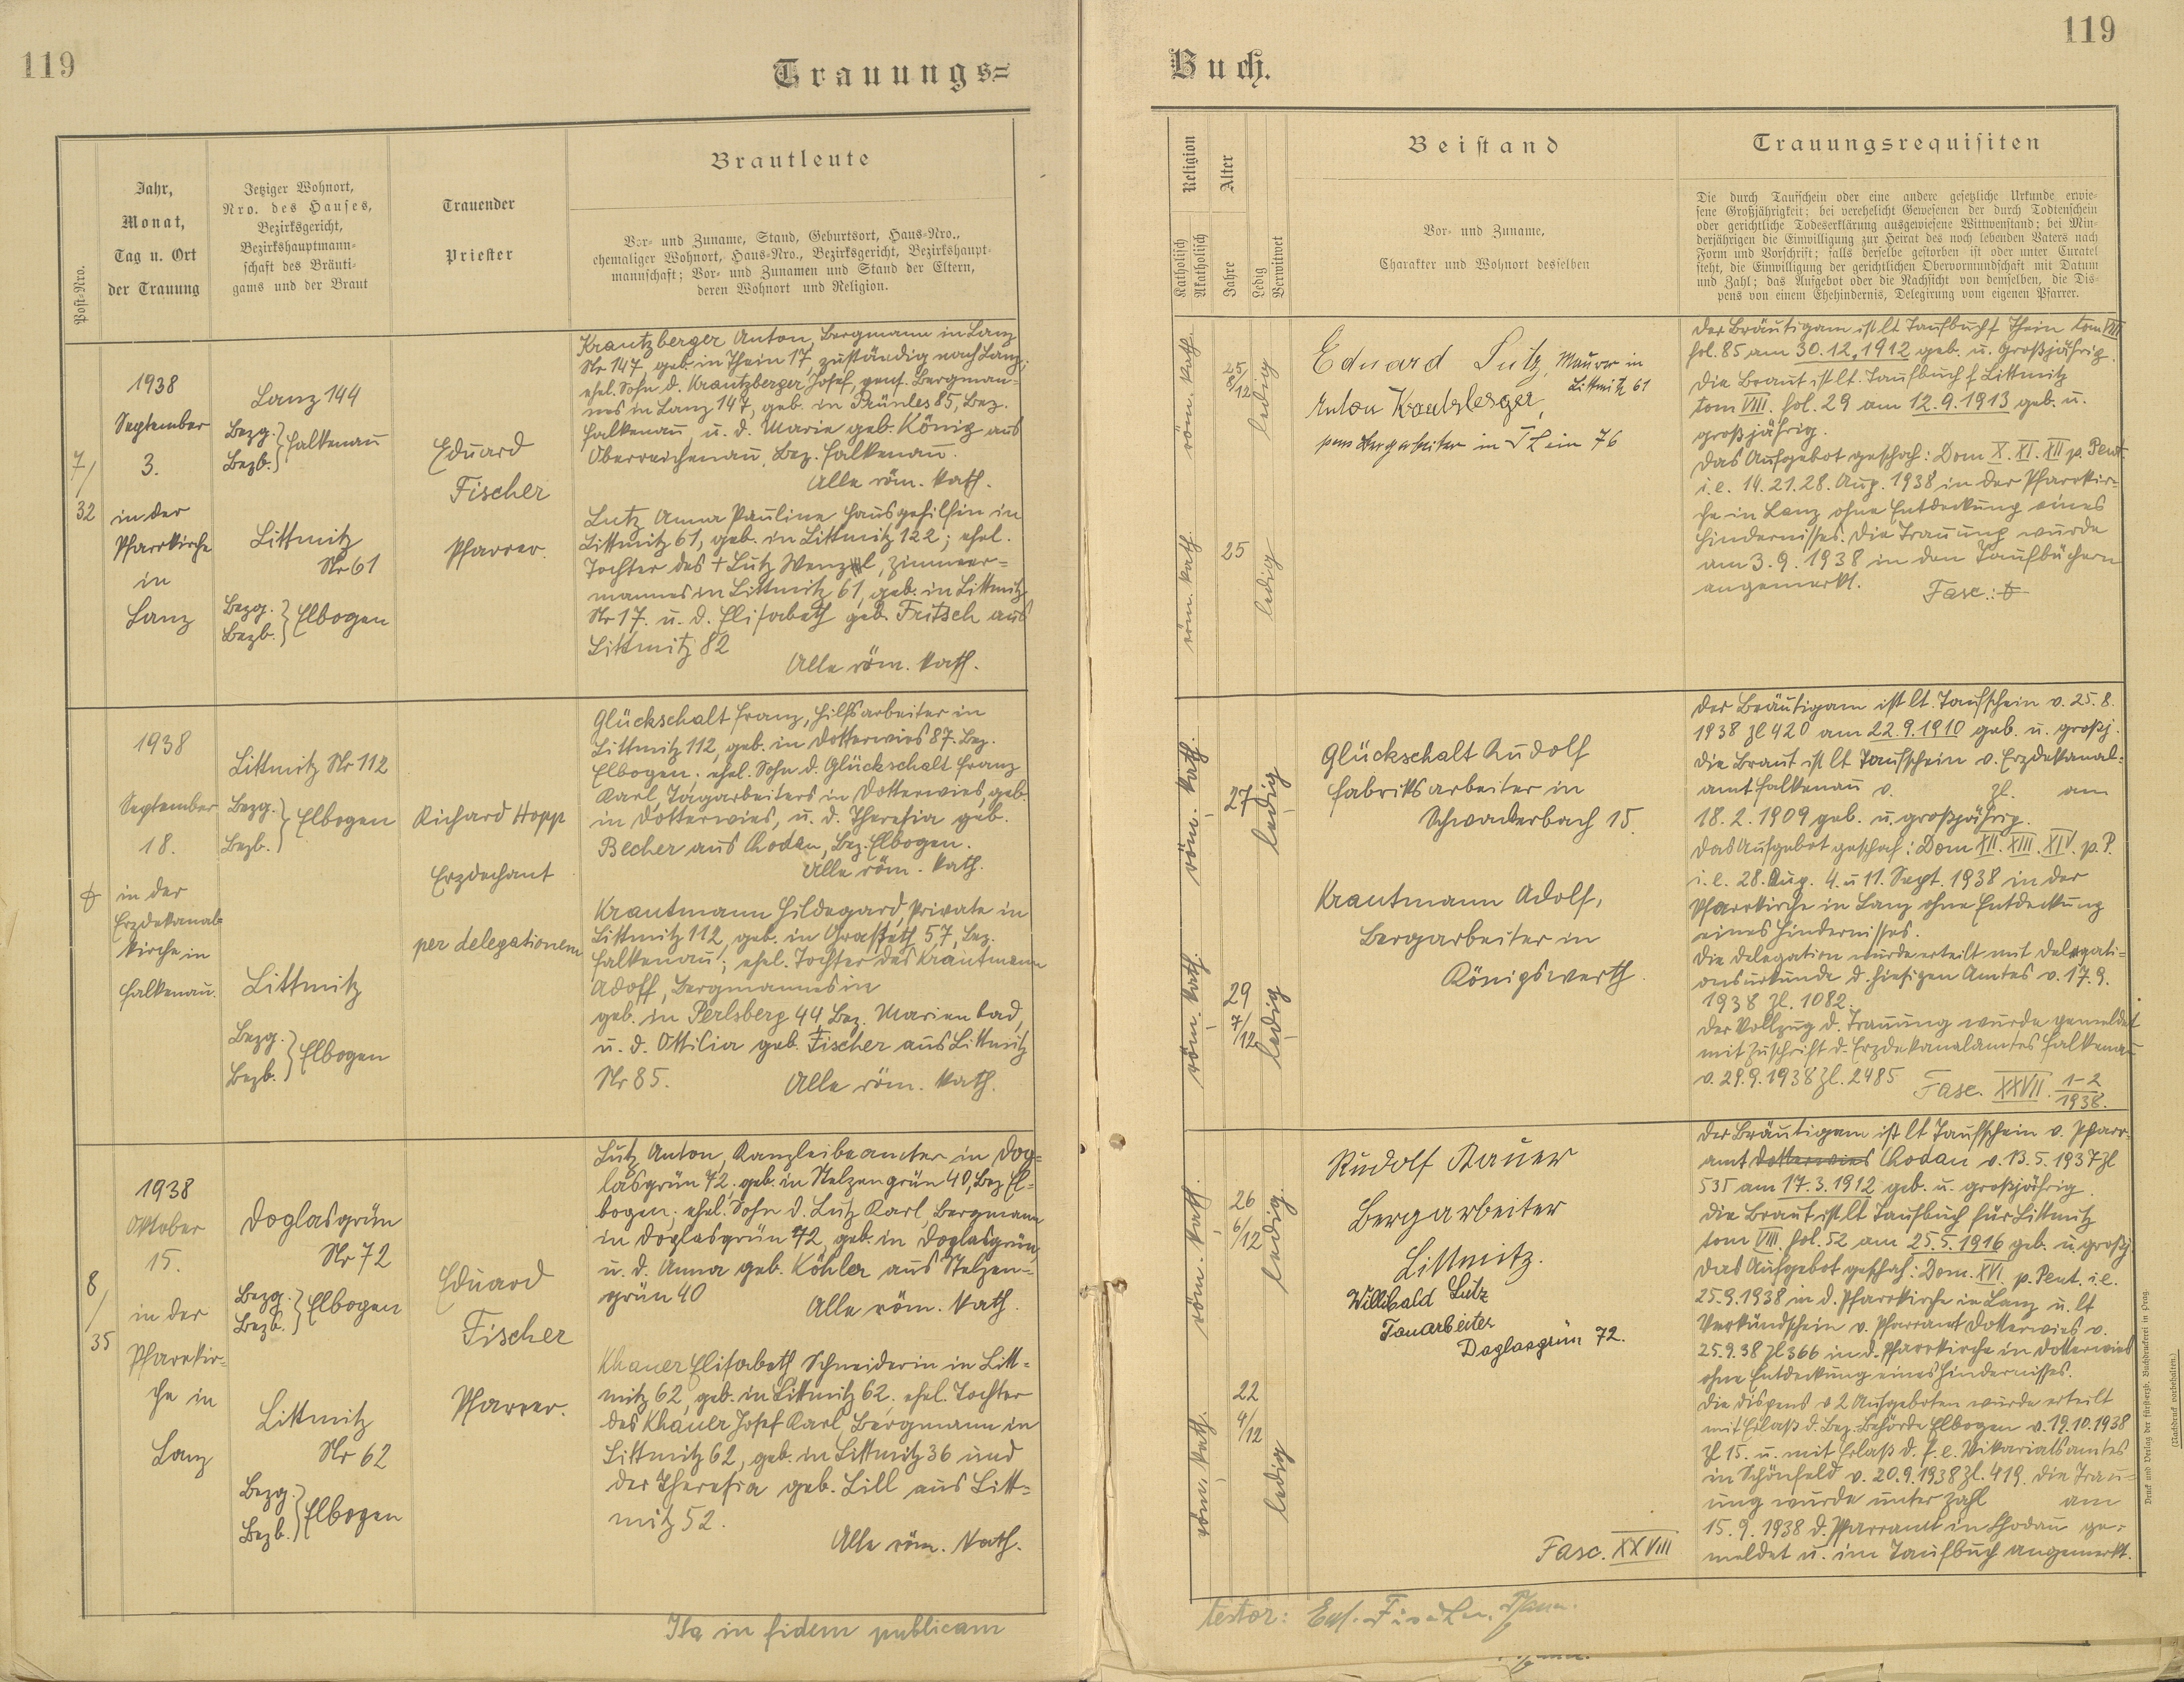 119
Trauungs=
Jahr,
Monat,
Tag u. Ort
der Trauung
Post-Nro.
Jetziger Wohnort,
Nro. des Hauses,
Bezirksgericht,
Bezirkshauptmann-
schaft des Bräuti-
gams und der Braut
Trauender
Priester
Brautleute
Vor- und Zuname, Stand, Geburtsort, Haus-Nro.,
ehemaliger Wohnort, Haus-Nro., Bezirksgericht, Bezirkshaupt-
mannschaft; Vor- und Zunamen und Stand der Eltern,
deren Wohnort und Religion.
7/
32
1938
September
3.
in der
Pfarrkirche
in
Lanz
Lanz 144
Bezg. } Falkenau
Bezb.
Littmitz
Nr 61
Bezg. } Elbogen
Bezb.
Eduard
Fischer
Pfarrer.
Krautzberger Anton, Bergmann in Lanz
Nr 147, geb. in Thein 17, zuständig nach Lanz;
ehel. Sohn d. Krautzberger Josef, pens. Bergman-
nes in Lanz 147, geb. in Prünles 85, Bez.
Falkenau, u. d. Marie geb. König aus
Oberreichenau, Bez. Falkenau.
Alle röm. kath.
Lutz Anna Pauline Hausgehilfin in
Littmitz 61, geb. in Littmitz 122; ehel.
Tochter des + Lutz Wenzel, Zimmer-
mannes in Littmitz 61, geb. in Littmitz
Nr 17. u. d. Elisabeth geb. Fritsch aus
Littmitz 82
Alle röm. kath.
1938
September
18.
in der
Erzdekanal-
kirche in
Falkenau.
Littmitz Nr 112
Bezg. } Elbogen
Bezb.
Littmitz
Bezg. } Elbogen
Bezb.
Richard Hopp
Erzdechant
per delegationem
Glückschalt Franz, Hilfsarbeiter in
Littmitz 112, geb. in Dotterwies 87. Bez.
Elbogen; ehel. Sohn d. Glückschalt Franz
Karl, Tagarbeiters in Dotterwies, geb.
in Dotterwies, u. d. Theresia geb.
Becher aus Chodau, Bez. Elbogen.
Alle röm. kath.
Krautmann Hildegard, Private in
Littmitz 112, geb. in Grasseth 57, Bez.
Falkenau; ehel. Tochter des Krautmann
Adolf, Bergmannes in
geb. in Perlsberg 44, Bez. Marienbad,
u. d. Ottilia geb. Fischer aus Littmitz
Nr 85. Alle röm. kath.
8/
35
1938
Oktober
15.
in der
Pfarrkir-
che in
Lanz
Doglasgrün
Nr 72
Bezg. } Elbogen
Bezb.
Littmitz
Nr 62
Bezg. } Elbogen
Bezb.
Eduard
Fischer
Pfarrer.
Lutz Anton, Kanzleibeamter in Dog-
lasgrün 72, geb. in Stelzengrün 40, Bez. El-
bogen; ehel. Sohn d. Lutz Karl, Bergmann
in Doglasgrün 72, geb. in Doglasgrün,
u. d. Anna geb. Köhler aus Stelzen-
grün 40
Alle röm. kath.
Khauer Elisabeth Schneiderin in Litt-
mitz 62, geb. in Littmitz 62, ehel. Tochter
des Khauer Josef Karl, Bergmann in
Littmitz 62, geb. in Littmitz 36 und
der Theresia geb. Lill aus Litt-
mitz 52.
Alle röm. kath.
Ita in fidem publicam
119
Buch.
Religion
Katholisch
Akatholisch
Alter
Jahre
Ledig
Verwitwet
Beistand
Vor- und Zuname,
Charakter und Wohnort desselben
Trauungsrequisiten
Die durch Taufschein oder eine andere gesetzliche Urkunde erwie-
sene Großjährigkeit; bei verehelicht Gewesenen der durch Todtenschein
oder gerichtliche Todeserklärung ausgewiesene Wittwenstand; bei Min-
derjährigen die Einwilligung zur Heirat des noch lebenden Vaters nach
Form und Vorschrift; falls derselbe gestorben ist oder unter Curatel
steht, die Einwilligung der gerichtlichen Obervormundschaft mit Datum
und Zahl; das Aufgebot oder die Nachsicht von demselben, die Dis-
pens von einem Ehehindernis, Delegirung vom eigenen Pfarrer.
röm. kath.
25
8/12
ledig
röm. kath.
25
ledig
Eduard Lutz, Maurer in
Littmitz 61
Anton Krautzberger,
pens Bergarbeiter in Thein 76
Der Bräutigam ist lt Taufbuch f Thein tom VIII
fol. 85 am 30.12.1912 geb. u. großjährig.
Die Braut ist lt. Taufbuch f Littmitz
tom VIII. fol. 29 am 12.9.1913 geb. u.
großjährig.
Das Aufgebot geschah: Dom X. XI. XII p. Pent.
i.e. 14. 21. 28. Aug. 1938 in der Pfarrkir-
che in Lanz ohne Entdeckung eines
Hindernisses. Die Trauung wurde
am 3.9.1938 in den Taufbüchern
angemerkt. Fasc.:
röm. kath.
27
ledig
röm. kath.
29
7/12
ledig
Glückschalt Rudolf
Fabriksarbeiter in
Schwaderbach 15.
Krautmann Adolf,
Bergarbeiter in
Königswerth
Der Bräutigam ist lt. Taufschein v. 25.8.
1938 Zl 420 am 22.9.1910 geb. u. großj.
Die Braut ist lt Taufschein v. Erzdekanal-
amt Falkenau v. Zl. am
18.2.1909 geb. u. großjährig.
Das Aufgebot geschah: Dom XII. XIII. XIV. p. P.
i.e. 28. Aug. 4. u 11. Sept. 1938 in der
Pfarrkirche in Lanz ohne Entdeckung
eines Hindernisses.
Die Delegation wurde erteilt mit Delegati-
onsurkunde d. hiesigen Amtes v. 17.9.
1938 Zl. 1082.
Der Vollzug d. Trauung wurde gemeldet
mit Zuschrift d. Erzdekanalamtes Falkenau
v. 29.9.1938 Zl. 2485 Fasc. XXVII. 1-2
1938.
röm. kath.
26
6/12
ledig.
röm. kath.
22
4/12
ledig
Rudolf Bauer
Bergarbeiter
Littmitz.
Willibald Lutz
Tonarbeiter
Doglasgrün 72.
Fasc. XXVIII
Der Bräutigam ist lt Taufschein v. Pfarr-
amt Dotterwies Chodau v. 13.5.1937 Zl
535 am 17.3.1912 geb. u. großjährig.
Die Braut ist lt Taufbuch für Littmitz
tom VIII. fol. 52 am 25.5.1916 geb. u. großj.
Das Aufgebot geschah: Dom. XVI. p. Pent. i.e.
25.9.1938 in d. Pfarrkirche in Lanz u. lt
Verkündschein v. Pfarramt Dotterwies v.
25.9.38 Zl 366 in d. Pfarrkirche in Dotterwies
ohne Entdeckung eines Hindernisses.
Die Dispens v 2 Aufgeboten wurde erteilt
mit Erlaß d. Bez.-Behörde Elbogen v. 19.10.1938
Zl 15. u. mit Erlaß d. f. e. Vikariatsamtes
in Schönfeld v. 20.9.1938 Zl. 419. Die Trau-
ung wurde unter Zahl am
15.9.1938 d. Pfarramt in Chodau ge-
meldet u. im Taufbuch angemerkt.
testor: Ed. Fischer, Pfarrer.
Druck und Verlag der fürsterzb. Buchdruckerei in Prag.
(Nachdruck vorbehalten.)